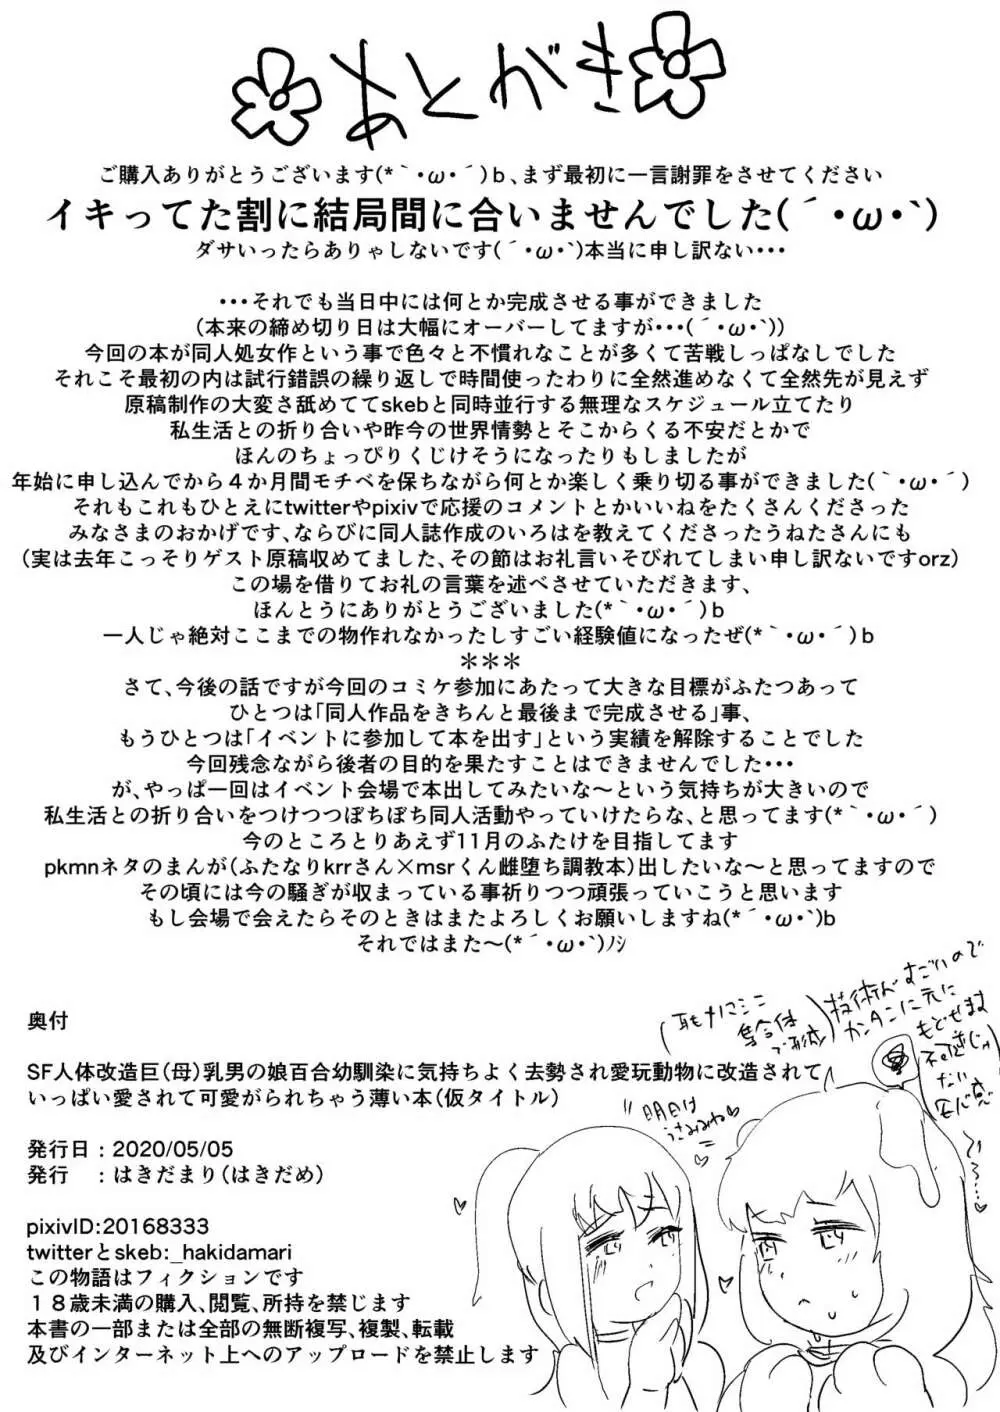 あとがき
ご購入ありがとうございます(*｀・ω・´)ｂ、まず最初に一言謝罪をさせてください
イキってた割に結局間に合いませんでした(´・ω・`)
ダサいったらありゃしないです(´・ω・`)本当に申し訳ない・・・
・・・それでも当日中には何とか完成させる事ができました
(本来の締め切り日は大幅にオーバーしてますが・・・(´・ω・`))
今回の本が同人処女作という事で色々と不慣れなことが多くて苦戦しっぱなしでした
それこそ最初の内は試行錯誤の繰り返しで時間使ったわりに全然進めなくて全然先が見えず
原稿制作の大変さ舐めててskebと同時並行する無理なスケジュール立てたり
私生活との折り合いや昨今の世界情勢とそこからくる不安だとかで
ほんのちょっぴりくじけそうになったりもしましたが
年始に申し込んでから４か月間モチベを保ちながら何とか楽しく乗り切る事ができました(｀・ω・´)
それもこれもひとえにtwitterやpixivで応援のコメントとかいいねをたくさんくださった
みなさまのおかげです、ならびに同人誌作成のいろはを教えてくださったうねたさんにも
(実は去年こっそりゲスト原稿収めてました、その節はお礼言いそびれてしまい申し訳ないですorz)
この場を借りてお礼の言葉を述べさせていただきます、
ほんとうにありがとうございました(*｀・ω・´)ｂ
一人じゃ絶対ここまでの物作れなかったしすごい経験値になったぜ(*｀・ω・´)ｂ
＊＊＊
さて、今後の話ですが今回のコミケ参加にあたって大きな目標がふたつあって
ひとつは「同人作品をきちんと最後まで完成させる」事、
もうひとつは「イベントに参加して本を出す」という実績を解除することでした
今回残念ながら後者の目的を果たすことはできませんでした・・・
が、やっぱ一回はイベント会場で本出してみたいな～という気持ちが大きいので
私生活との折り合いをつけつつぼちぼち同人活動やっていけたらな、と思ってます(*｀・ω・´)
今のところとりあえず11月のふたけを目指してます
pkmnネタのまんが(ふたなりkrrさん×msrくん雌堕ち調教本)出したいな～と思ってますので
その頃には今の騒ぎが収まっている事祈りつつ頑張っていこうと思います
もし会場で会えたらそのときはまたよろしくお願いしますね(*´・ω・`)b
それではまた～(*´・ω・`)ﾉｼ
技術がすごいので
カンタンに元に
もどせます
明日は
奥付
SF人体改造巨(母)乳男の娘百合幼馴染に気持ちよく去勢され愛玩動物に改造されて
いっぱい愛されて可愛がられちゃう薄い本(仮タイトル)
発行日：2020/05/05
発行　：はきだまり(はきだめ)
pixivID:20168333
twitterとskeb:_hakidamari
この物語はフィクションです
１８歳未満の購入、閲覧、所持を禁じます
本書の一部または全部の無断複写、複製、転載
及びインターネット上へのアップロードを禁止します